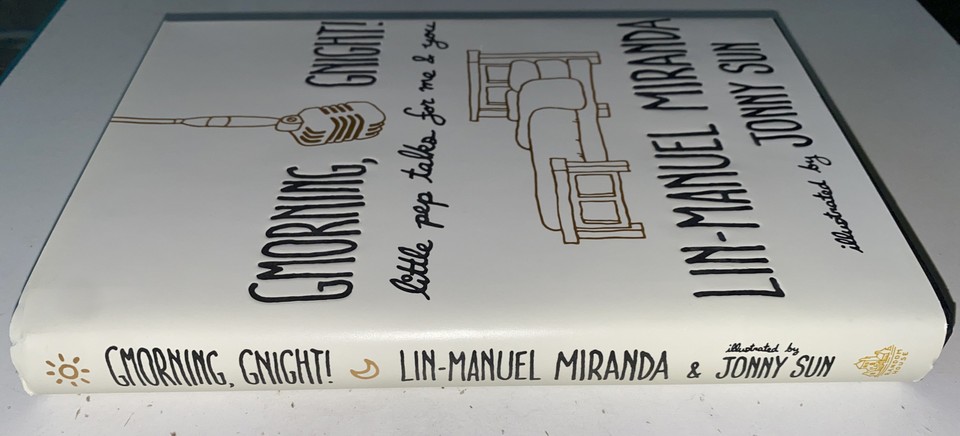 GMORNING, GNIGHT!
little pep talks for me & you
LIN-MANUEL MIRANDA
illustrated by JONNY SUN
GMORNING, GNIGHT! LIN-MANUEL MIRANDA & illustrated by JONNY SUN RANDOM HOUSE